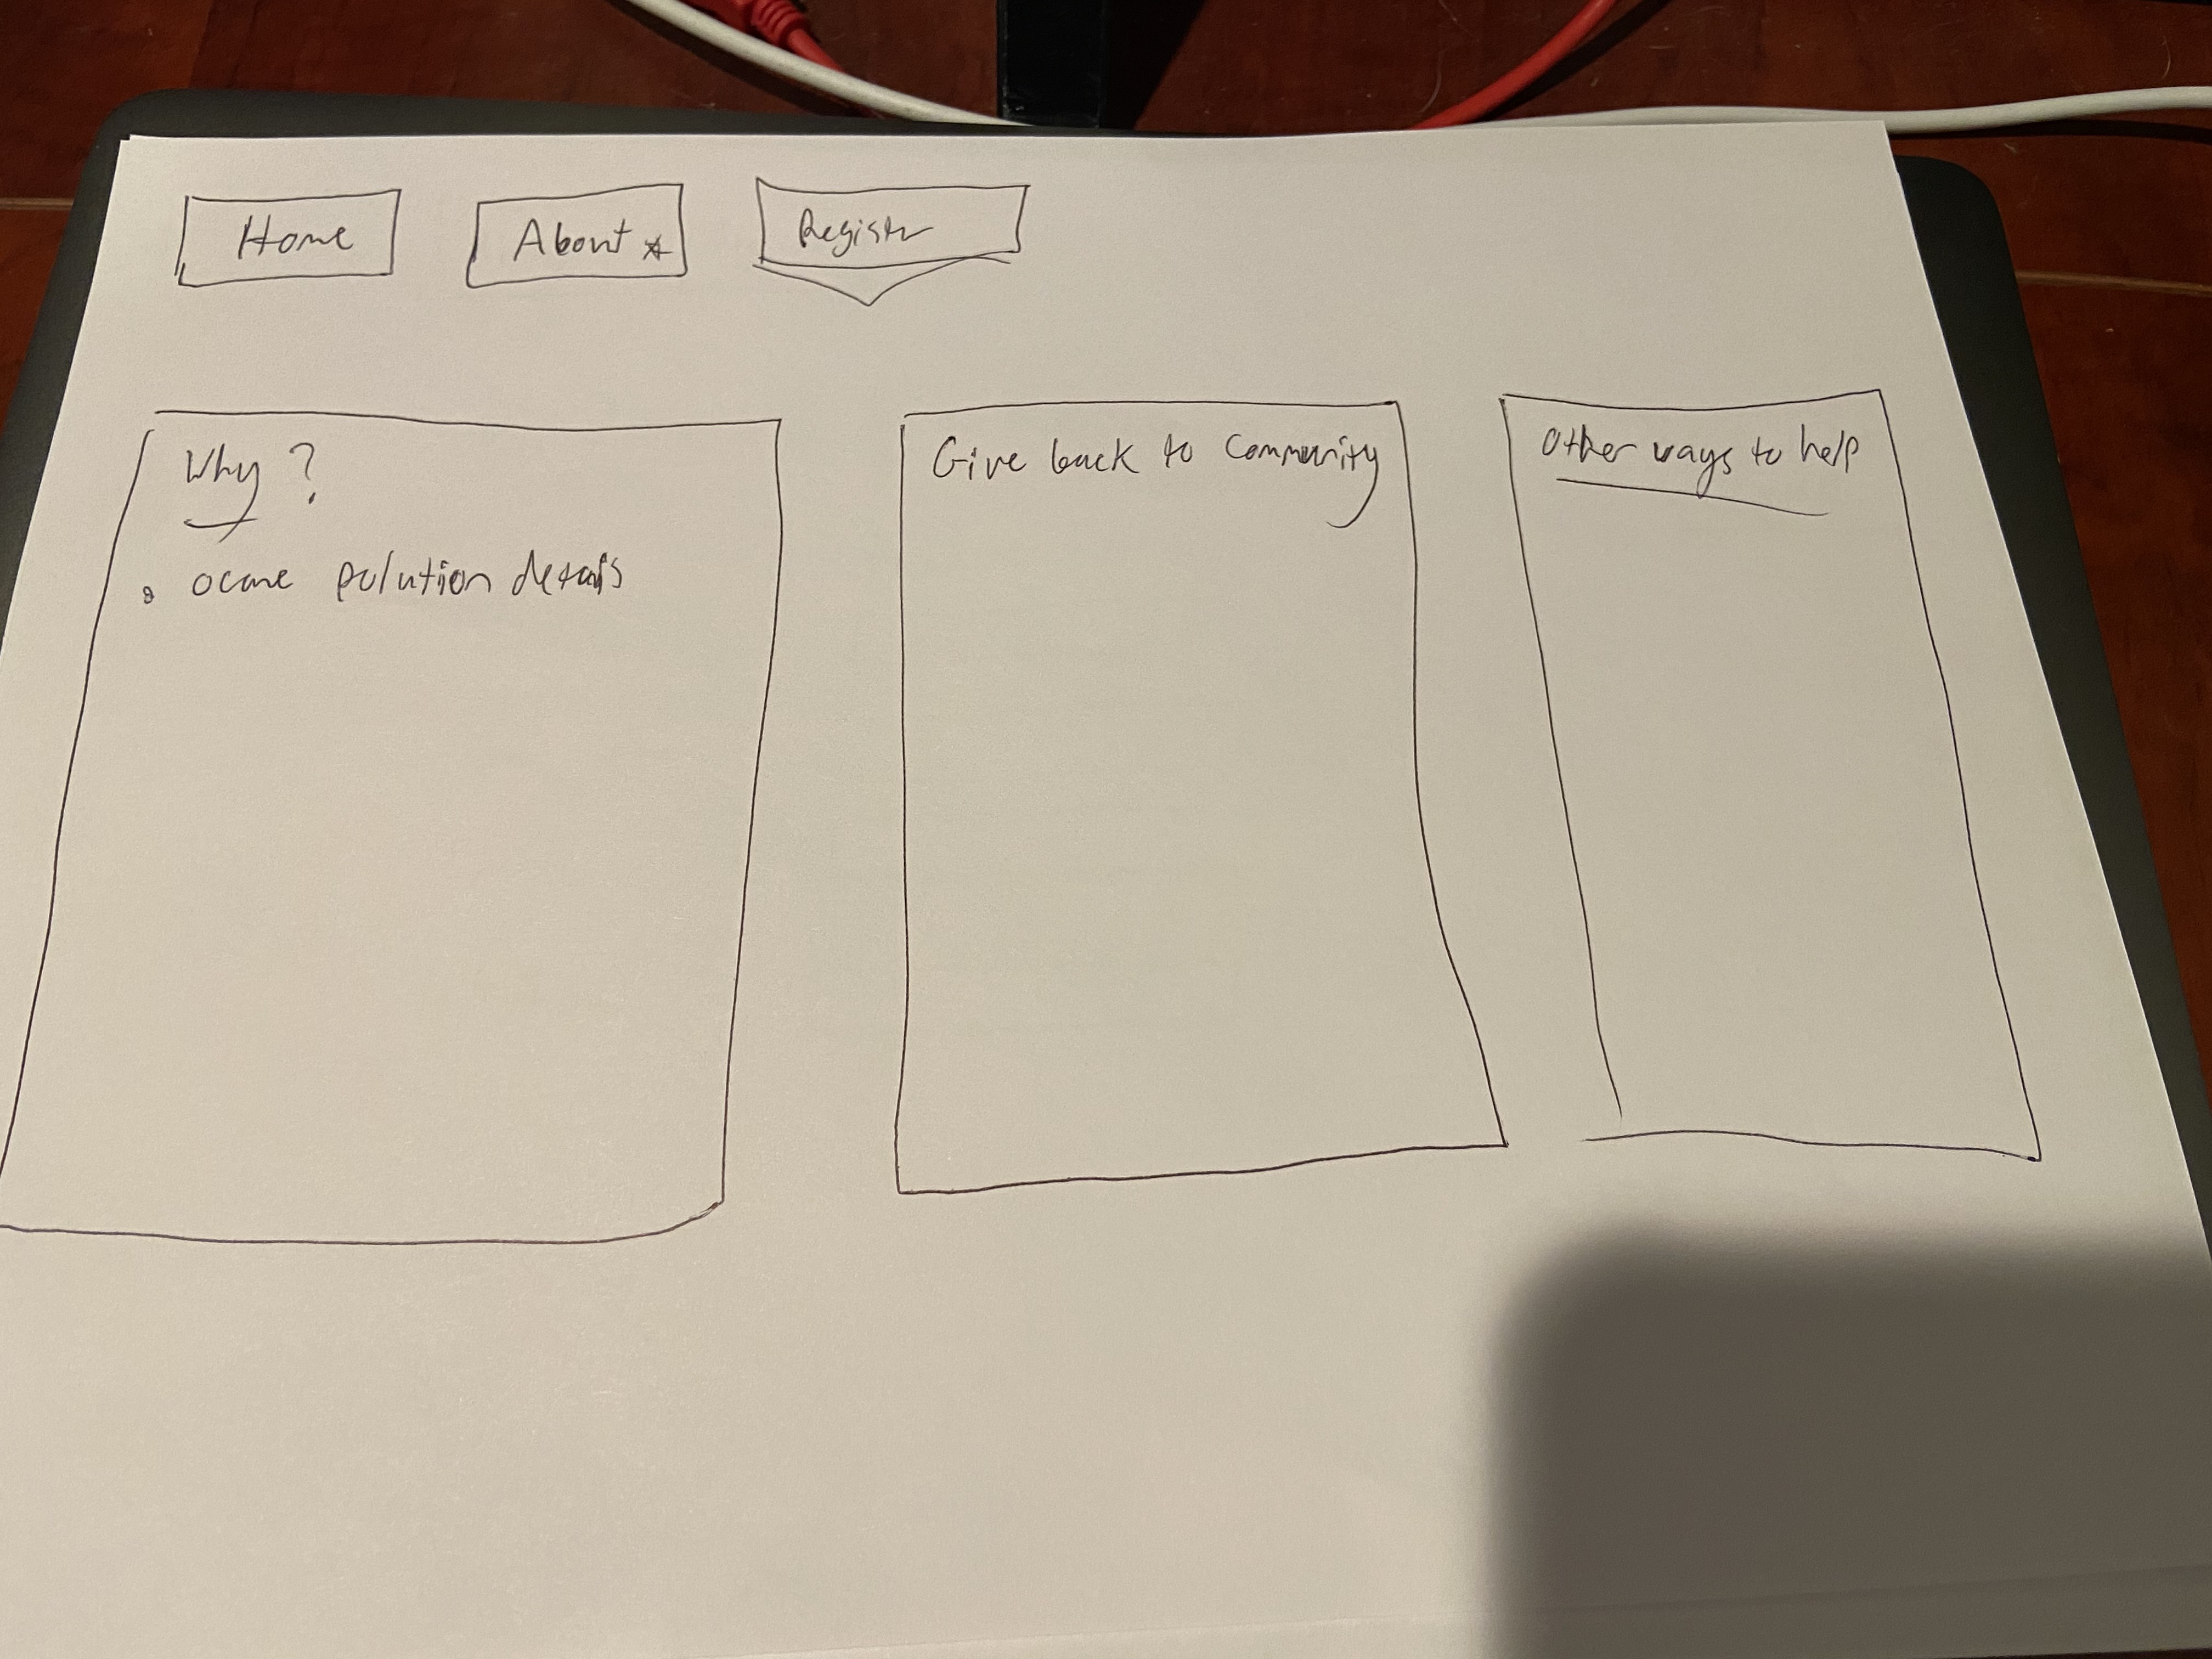 Home
About *
Register
Why?
ocane polution details
Give back to community
Other ways to help